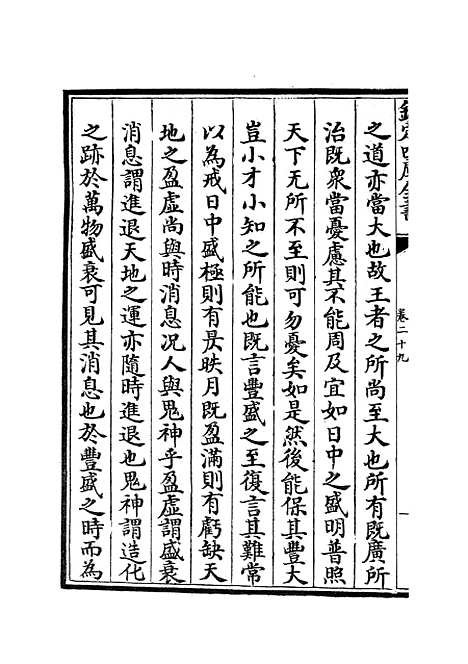 欽定四庫全書
卷二十九
之道亦當大也故王者之所尚至大也所有既廣所
治既衆當憂慮其不能周及宜如日中之盛明普照
天下无所不至則可勿憂矣如是然後能保其豐大
豈小才小知之所能也既言豐盛之至復言其難常
以為戒日中盛極則有昃昳月既盈滿則有虧缺天
地之盈虛尚與時消息況人與鬼神乎盈虛謂盛衰
消息謂進退天地之運亦隨時進退也鬼神謂造化
之跡於萬物盛衰可見其消息也於豐盛之時而為